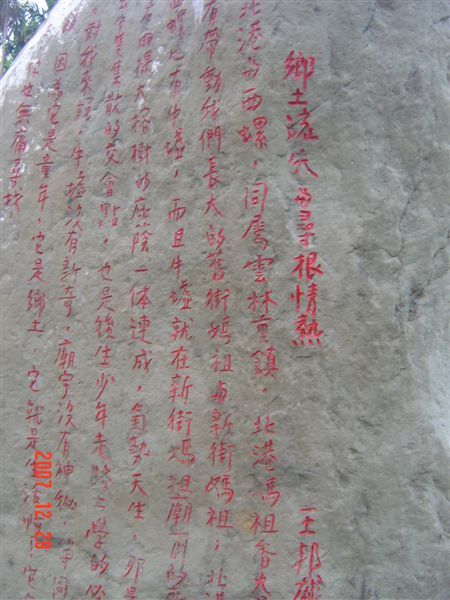 鄉土滄 與尋根情熱
王邦
北港與西螺，同屬雲林重鎮，北港媽祖香火
有帶動我們長大的舊街媽祖與新街媽祖；北港
西螺也有牛墟，而且牛墟就在新街媽祖廟前的
兩棵大榕樹的庇蔭一体連成，氣勢天生，那是
牛隻集散的交會點，也是後生少年老 學的必
對我來說，牛墟沒有新奇，廟宇沒有神秘，
因為它是童年，它是鄉土，它就是生活
也無庸尋找
2007.12.29